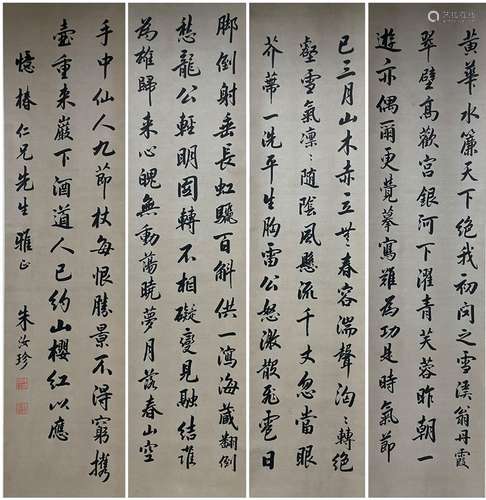 黃華水簾天下絕我初聞之雪溪翁丹霞
翠壁高歡宮銀河下濯青芙蓉昨朝一
遊亦偶爾更覺摹寫難為功是時氣節
已三月山木赤立无春容湍聲洶〻轉絕
壑雪氣凜〻隨陰風懸流千丈忽當眼
芥蒂一洗平生胸雷公怒激散飛雹日
腳倒射垂長虹驪百斛供一瀉海藏翻倒
愁龍公輕明圓轉不相礙變見融結誰
為雄歸來心魄無動蕩曉夢月落春山空
手中仙人九節杖每恨勝景不得窮攜
壺重來巖下酒道人已約山櫻紅以應
憶椿仁兄先生雅正
朱汝珍